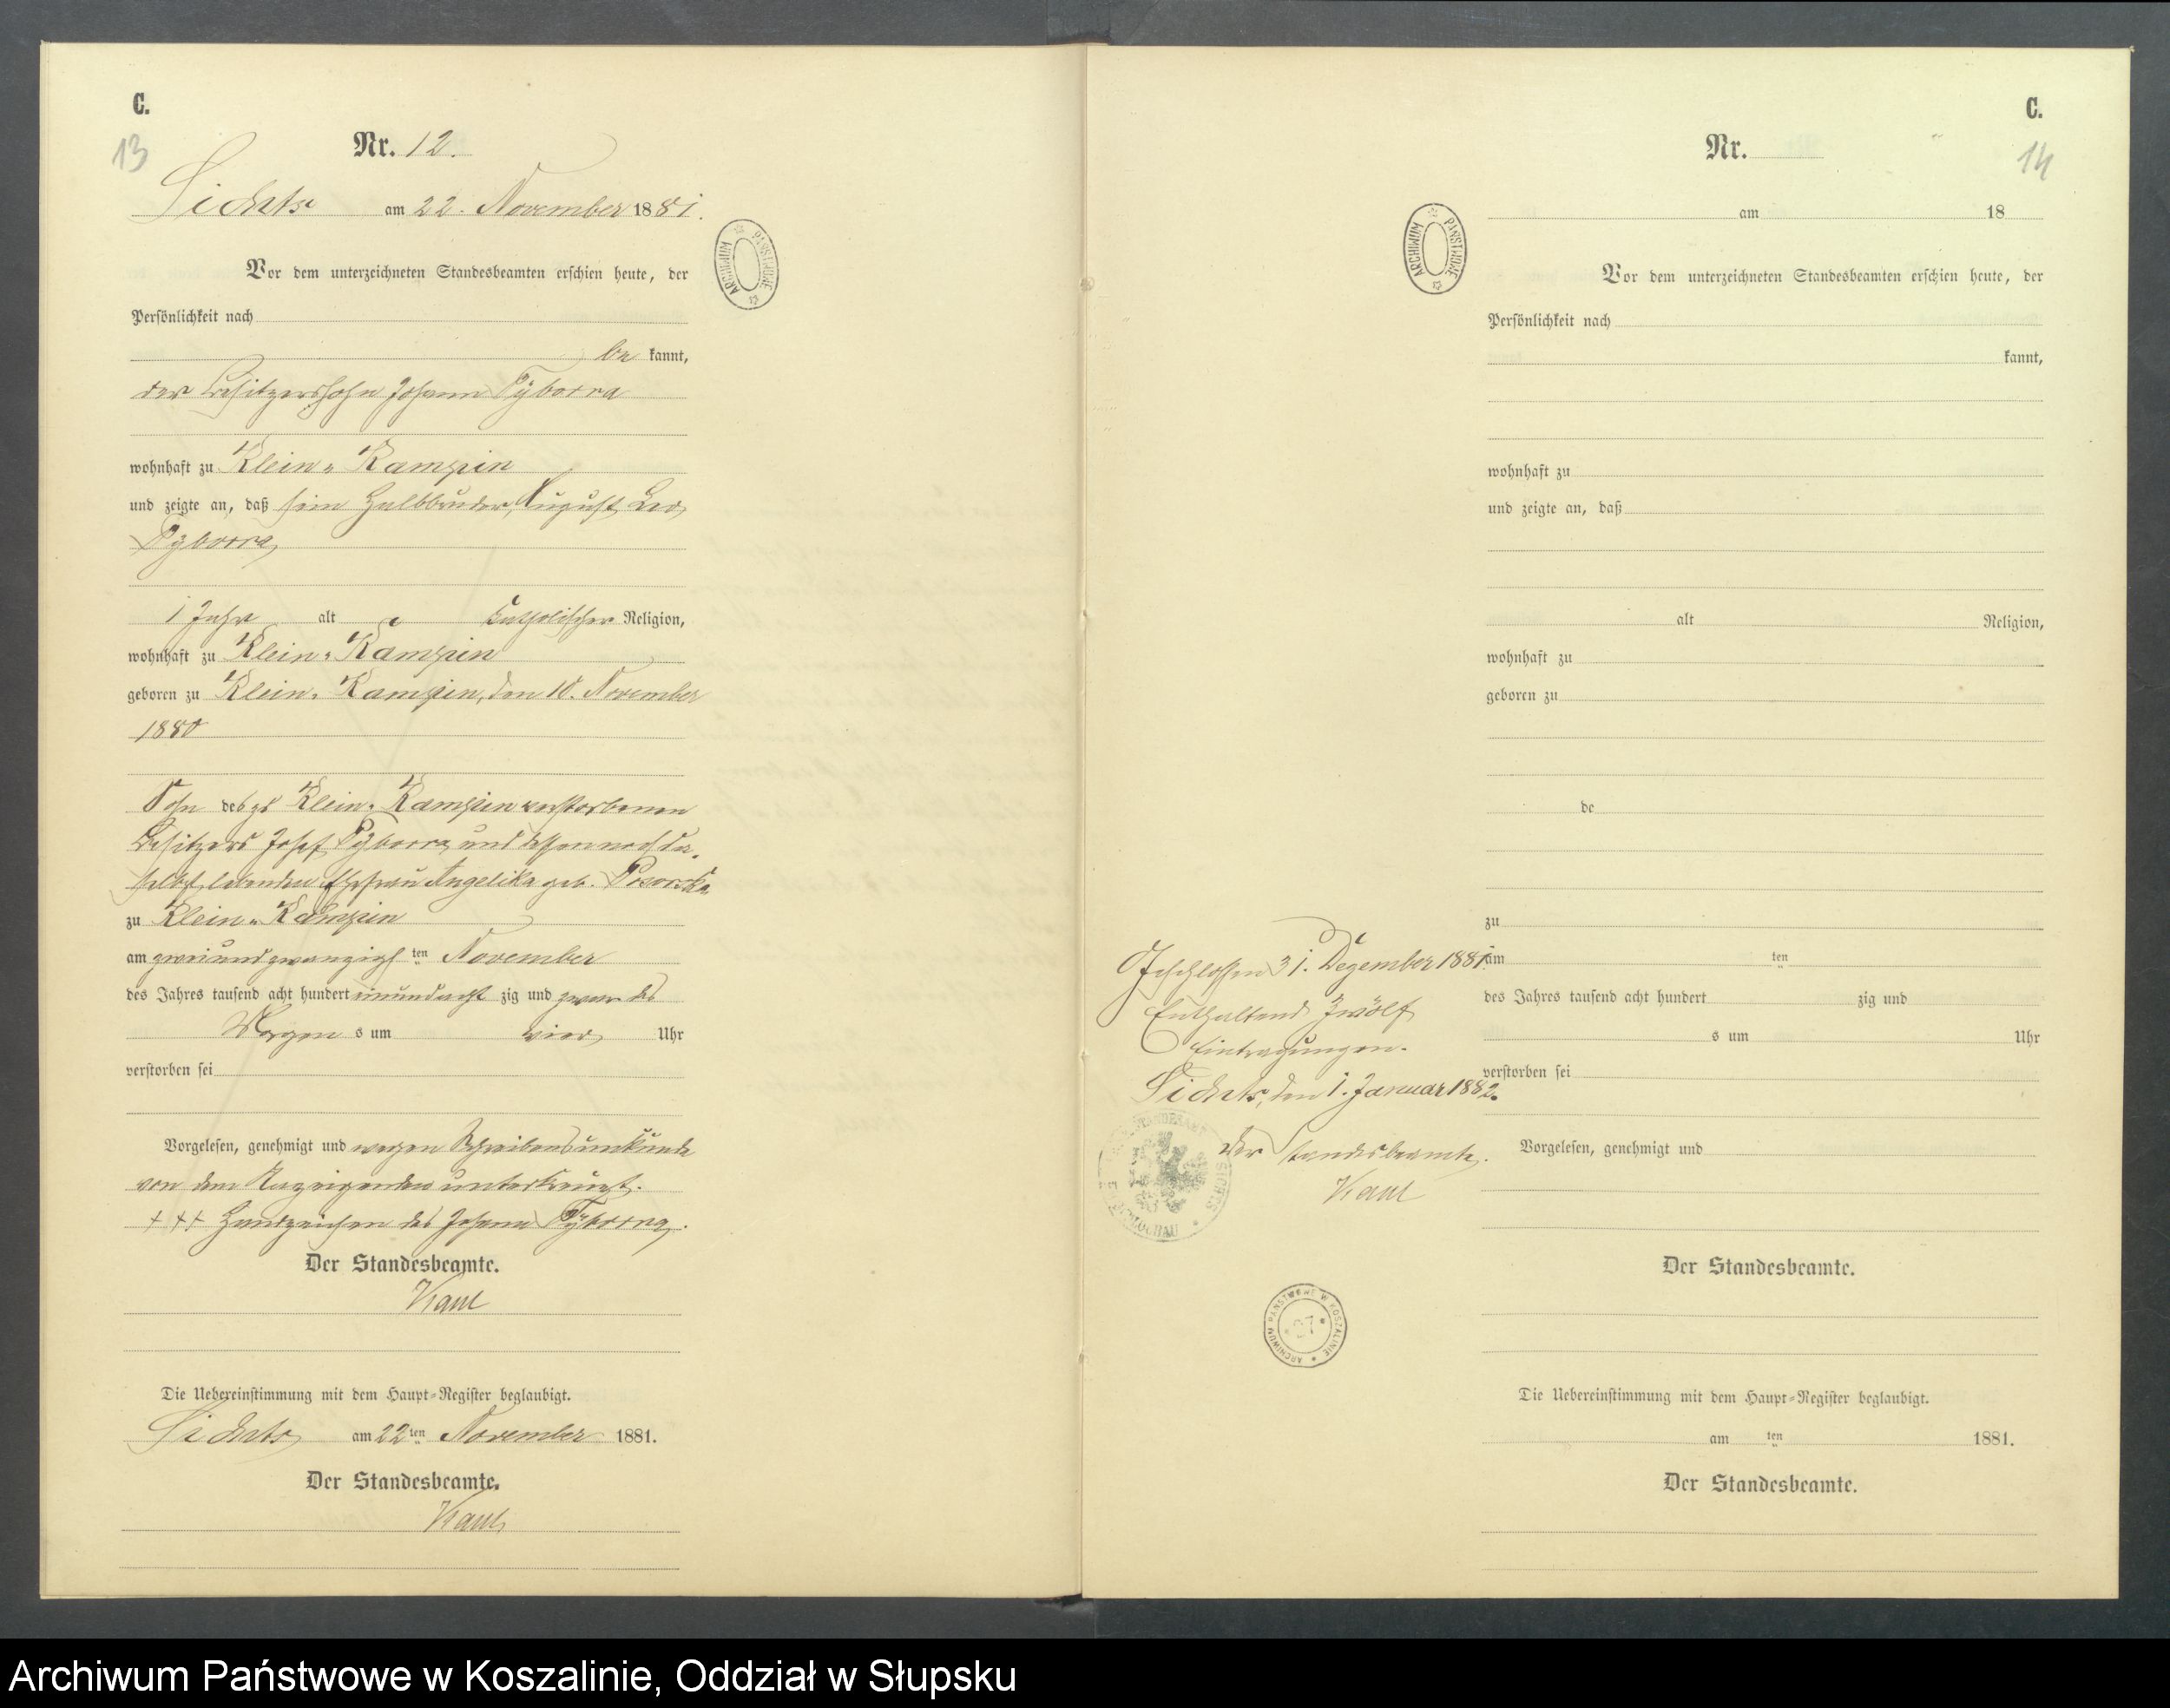 C.
13
Nr. 12.
Sichts am 22. November 1881.
ARCHIWUM PAŃSTWOWE
Vor dem unterzeichneten Standesbeamten erschien heute, der
Persönlichkeit nach
be kannt,
der Besitzerssohn Johann Tyborra
wohnhaft zu Klein-Kampin
und zeigte an, daß sein Halbbruder, August Leo
Tyborra
1 Jahr alt katholischer Religion,
wohnhaft zu Klein-Kampin
geboren zu Klein-Kampin, den 18. November
1880
Sohn des zu Klein-Kampin verstorbenen
Besitzers Josef Tyborra und dessen noch da-
selbst lebenden Ehefrau Angelika geb.
zu Klein-Kampin
am zweiundzwanzigsten November
des Jahres tausend acht hundert einundacht zig und zwar des
Morgen s um vier Uhr
verstorben sei
Vorgelesen, genehmigt und wegen Schreibensunkunde
von dem Anzeigenden unterkreuzt.
+++ Handzeichen des Johann Tyborra.
Der Standesbeamte.
Kaul
Die Uebereinstimmung mit dem Haupt-Register beglaubigt.
Sichts am 22ten November 1881.
Der Standesbeamte.
Kaul
C.
14
Nr.
am 18
ARCHIWUM PAŃSTWOWE
Vor dem unterzeichneten Standesbeamten erschien heute, der
Persönlichkeit nach
kannt,
wohnhaft zu
und zeigte an, daß
alt Religion,
wohnhaft zu
geboren zu
de
zu
am ten
des Jahres tausend acht hundert zig und
s um Uhr
verstorben sei
Vorgelesen, genehmigt und
Der Standesbeamte.
Die Uebereinstimmung mit dem Haupt-Register beglaubigt.
am ten 1881.
Der Standesbeamte.
Geschlossen 31. Dezember 1881.
Enthaltend Zwölf
Eintragungen.
Sichts, den 1. Januar 1882.
Der Standesbeamte.
Kaul
ARCHIWUM PAŃSTWOWE W KOSZALINIE
27
Archiwum Państwowe w Koszalinie, Oddział w Słupsku